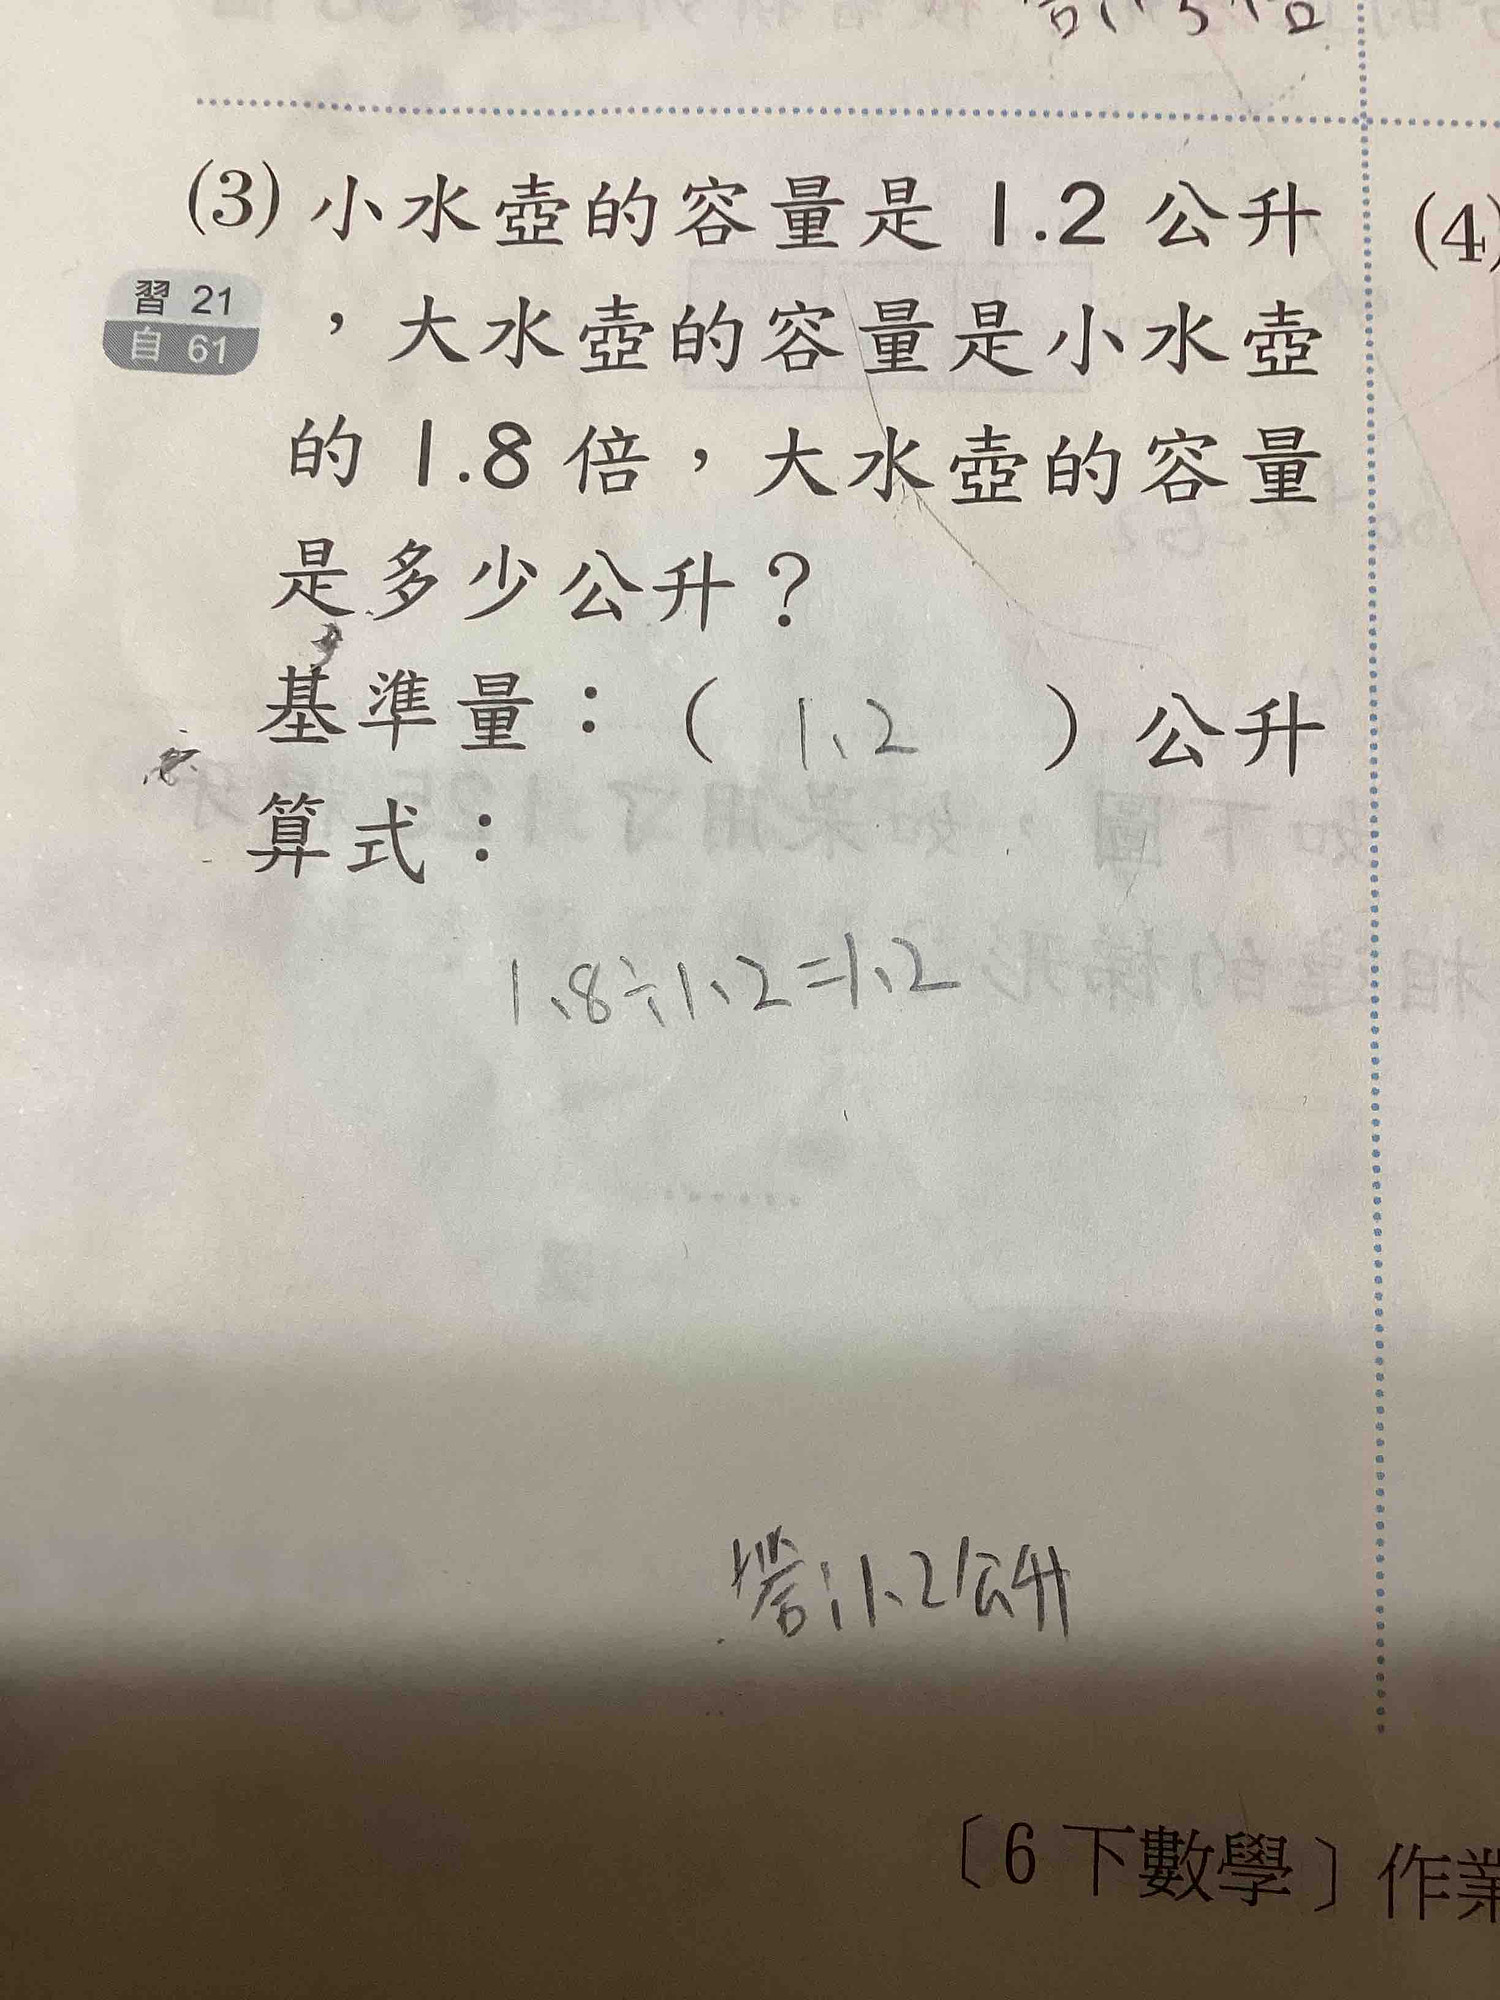 (3) 小水壺的容量是 1.2 公升
習 21
自 61
，大水壺的容量是小水壺
的 1.8 倍，大水壺的容量
是多少公升？
基準量：（ 1.2 ）公升
算式：
1.8÷1.2=1.2
答:1.2公升
(4)
〔6 下數學〕作業